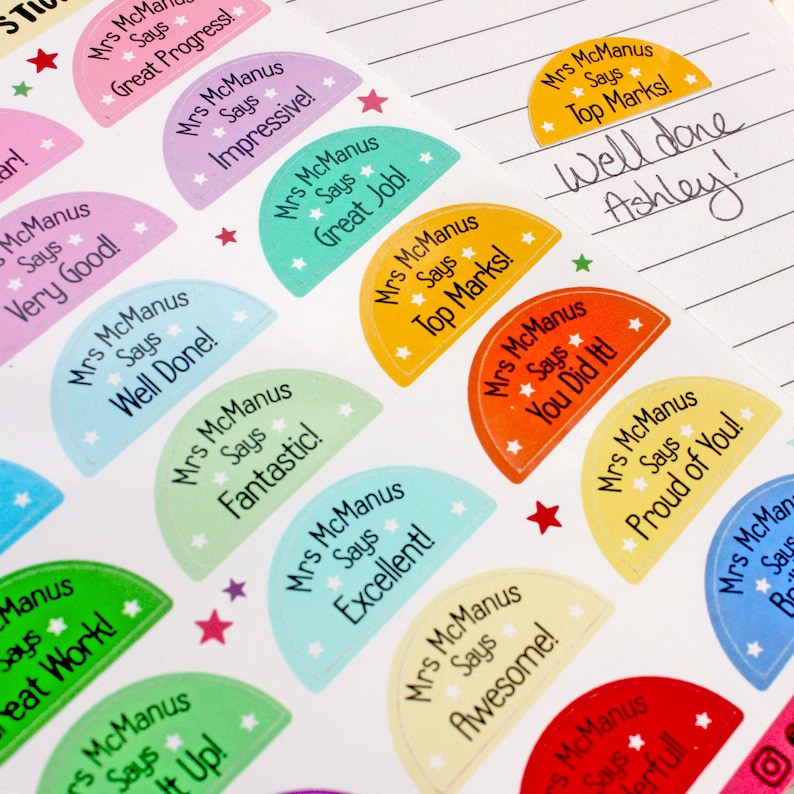 Mrs McManus
Says
Great Progress!
Mrs McManus
Says
Impressive!
Mrs McManus
Says
Great Job!
Mrs McManus
Says
Top Marks!
Mrs McManus
Says
You Did It!
Mrs McManus
Says
Proud of You!
Mrs McManus
Says
Top Marks!
Well done
Ashley!
Mrs McManus
Says
Very Good!
Mrs McManus
Says
Well Done!
Mrs McManus
Says
Fantastic!
Mrs McManus
Says
Excellent!
Mrs McManus
Says
Awesome!
Mrs McManus
Says
Mrs McManus
Says
Great Work!
Mrs McManus
Says
It Up!